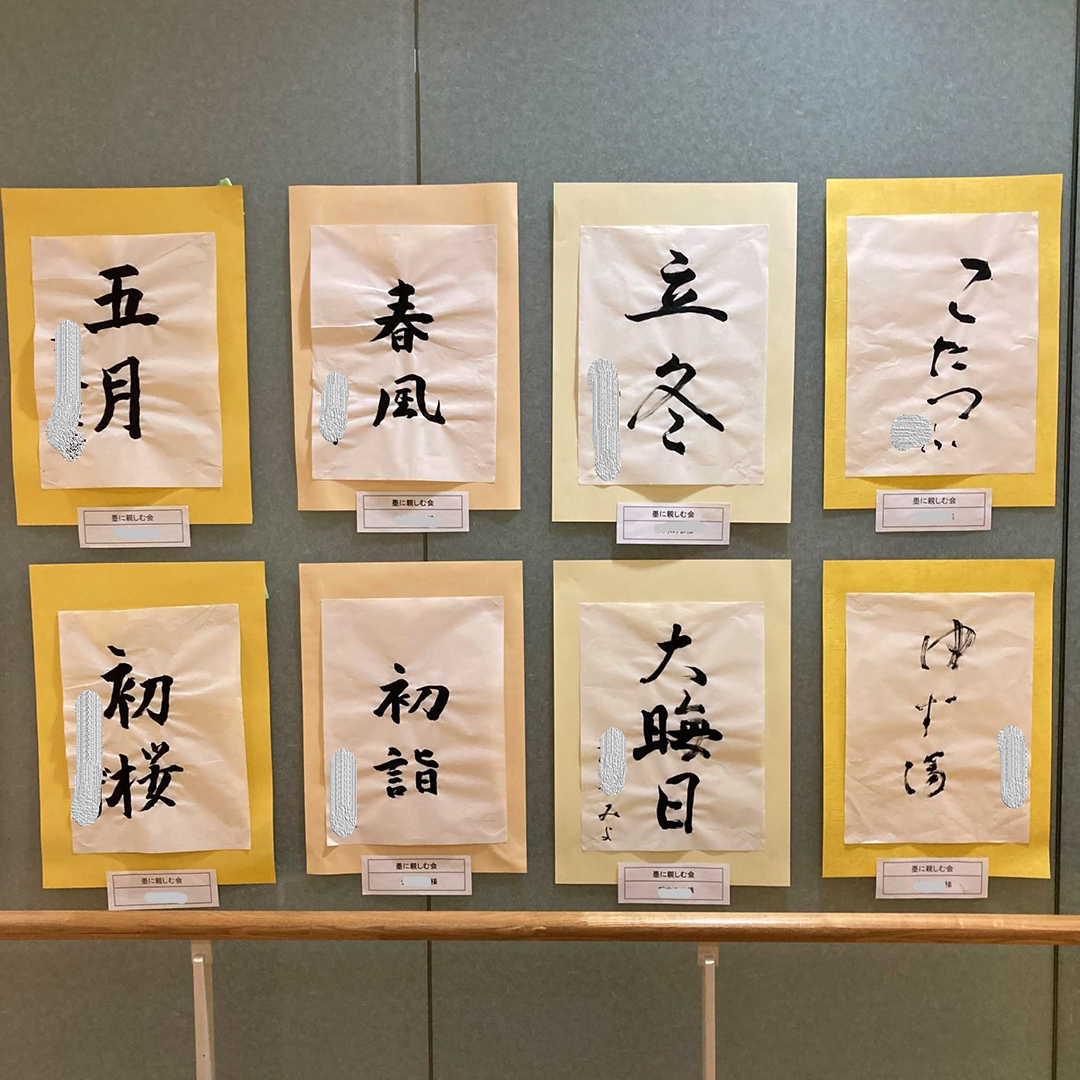 五月
春風
立冬
こたつ
墨に親しむ会
墨に親しむ会
墨に親しむ会
墨に親しむ会
初桜
初詣
大晦日
みよ
ゆず湯
墨に親しむ会
墨に親しむ会
様
墨に親しむ会
様
墨に親しむ会
様